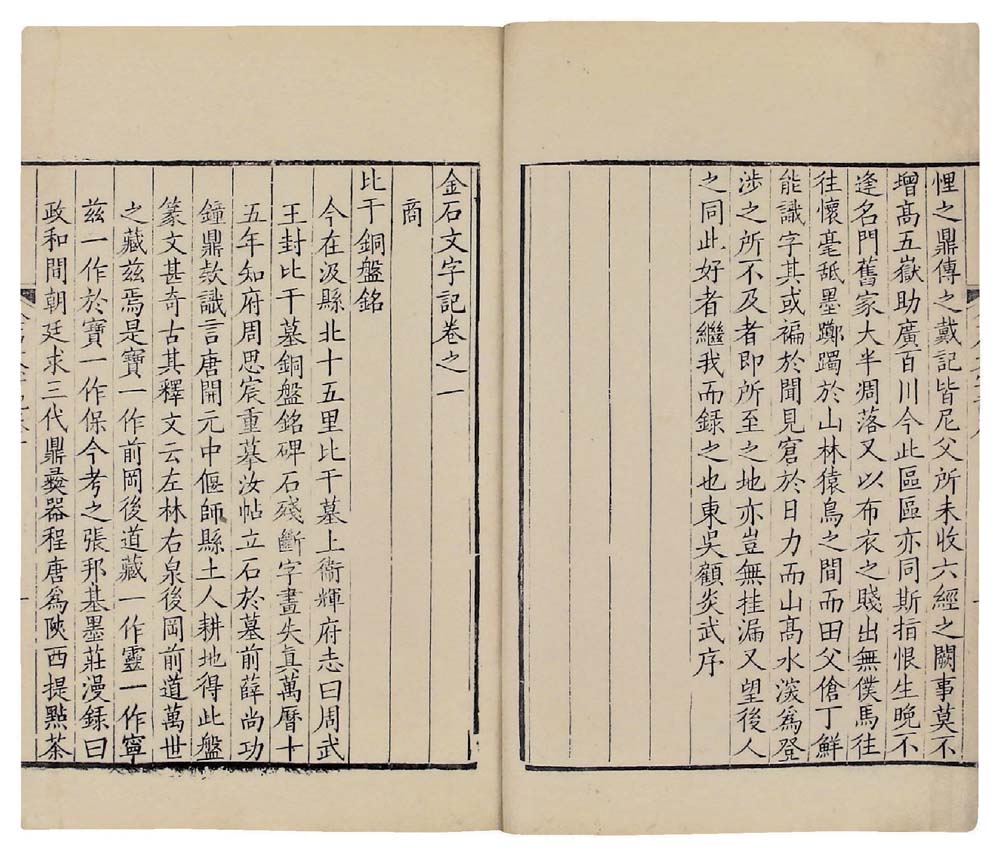 悝之鼎傳之戴記皆尼父所未收六經之闕事莫不
增高五嶽助廣百川今此區區亦同斯指恨生晚不
逢名門舊家大半凋落又以布衣之賤出無僕馬往
往懷毫舐墨躑躅於山林猿鳥之間而田父傖丁鮮
能識字其或褊於聞見窘於日力而山高水深爲登
涉之所不及者即所至之地亦豈無挂漏又望後人
之同此好者繼我而録之也東吳顧炎武序
金石文字記卷之一
商
比干銅盤銘
今在汲縣北十五里比干墓上衞輝府志曰周武
王封比干墓銅盤銘碑石殘斷字畫失真萬曆十
五年知府周思宸重摹汝帖立石於墓前薛尚功
鐘鼎款識言唐開元中偃師縣土人耕地得此盤
篆文甚奇古其釋文云左林右泉後岡前道萬世
之藏茲焉是寶一作前岡後道藏一作靈一作寧
茲一作於寶一作保今考之張邦基墨莊漫録曰
政和間朝廷求三代鼎彝器程唐爲陝西提點茶